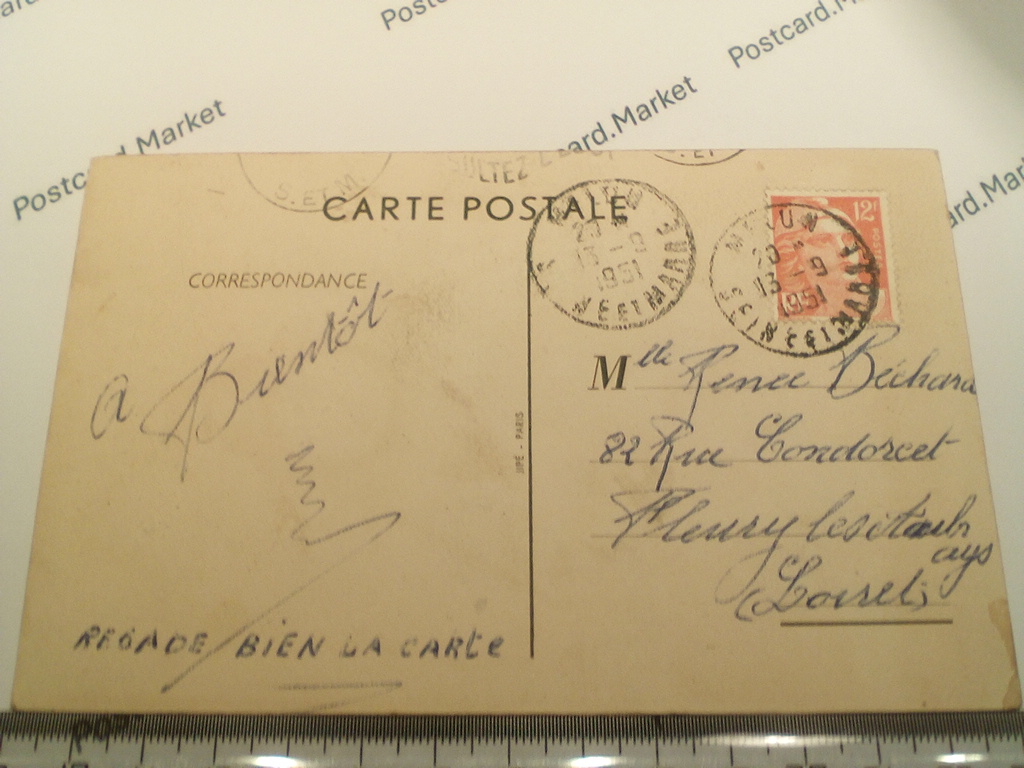 Postcard.Market
Postcard.Market
Postcard.Market
S. ET M.
ULTEZ
S. ET
CARTE POSTALE
CORRESPONDANCE
MELUN
13 - 9
1951
NE ET MARNE
MELUN
13 - 9
1951
SEINE ET
12F
A Bientôt
JIPÉ - PARIS
Mlle Renée Béchard
82 Rue Condorcet
Fleury les
(Loiret)
REGADE BIEN LA CARTE